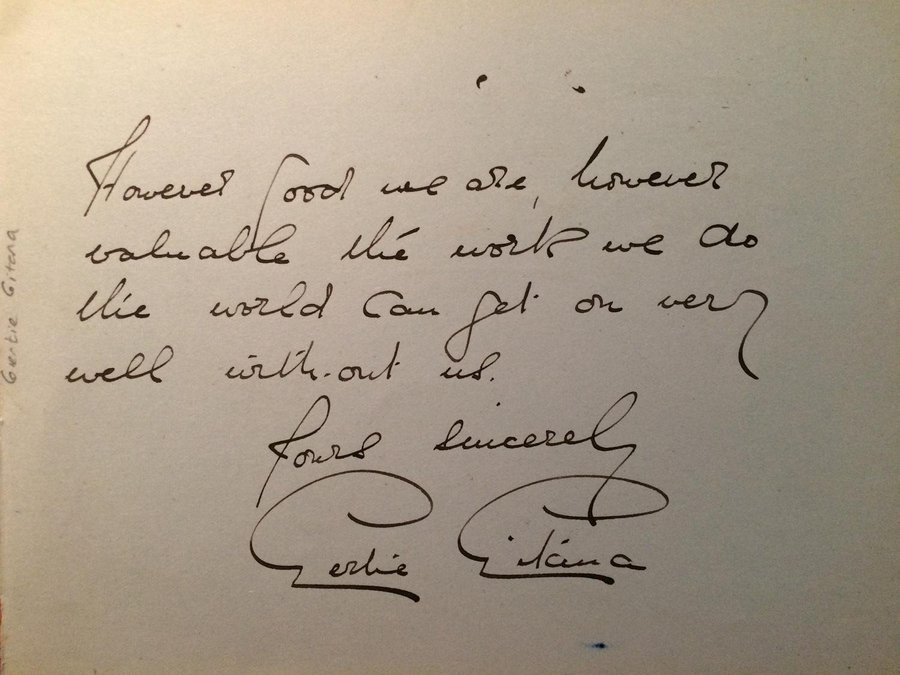 However good we are, however
valuable the work we do
the world can get on very
well with-out us.
Yours sincerely
Gertie Gitána
Gertie Gitana